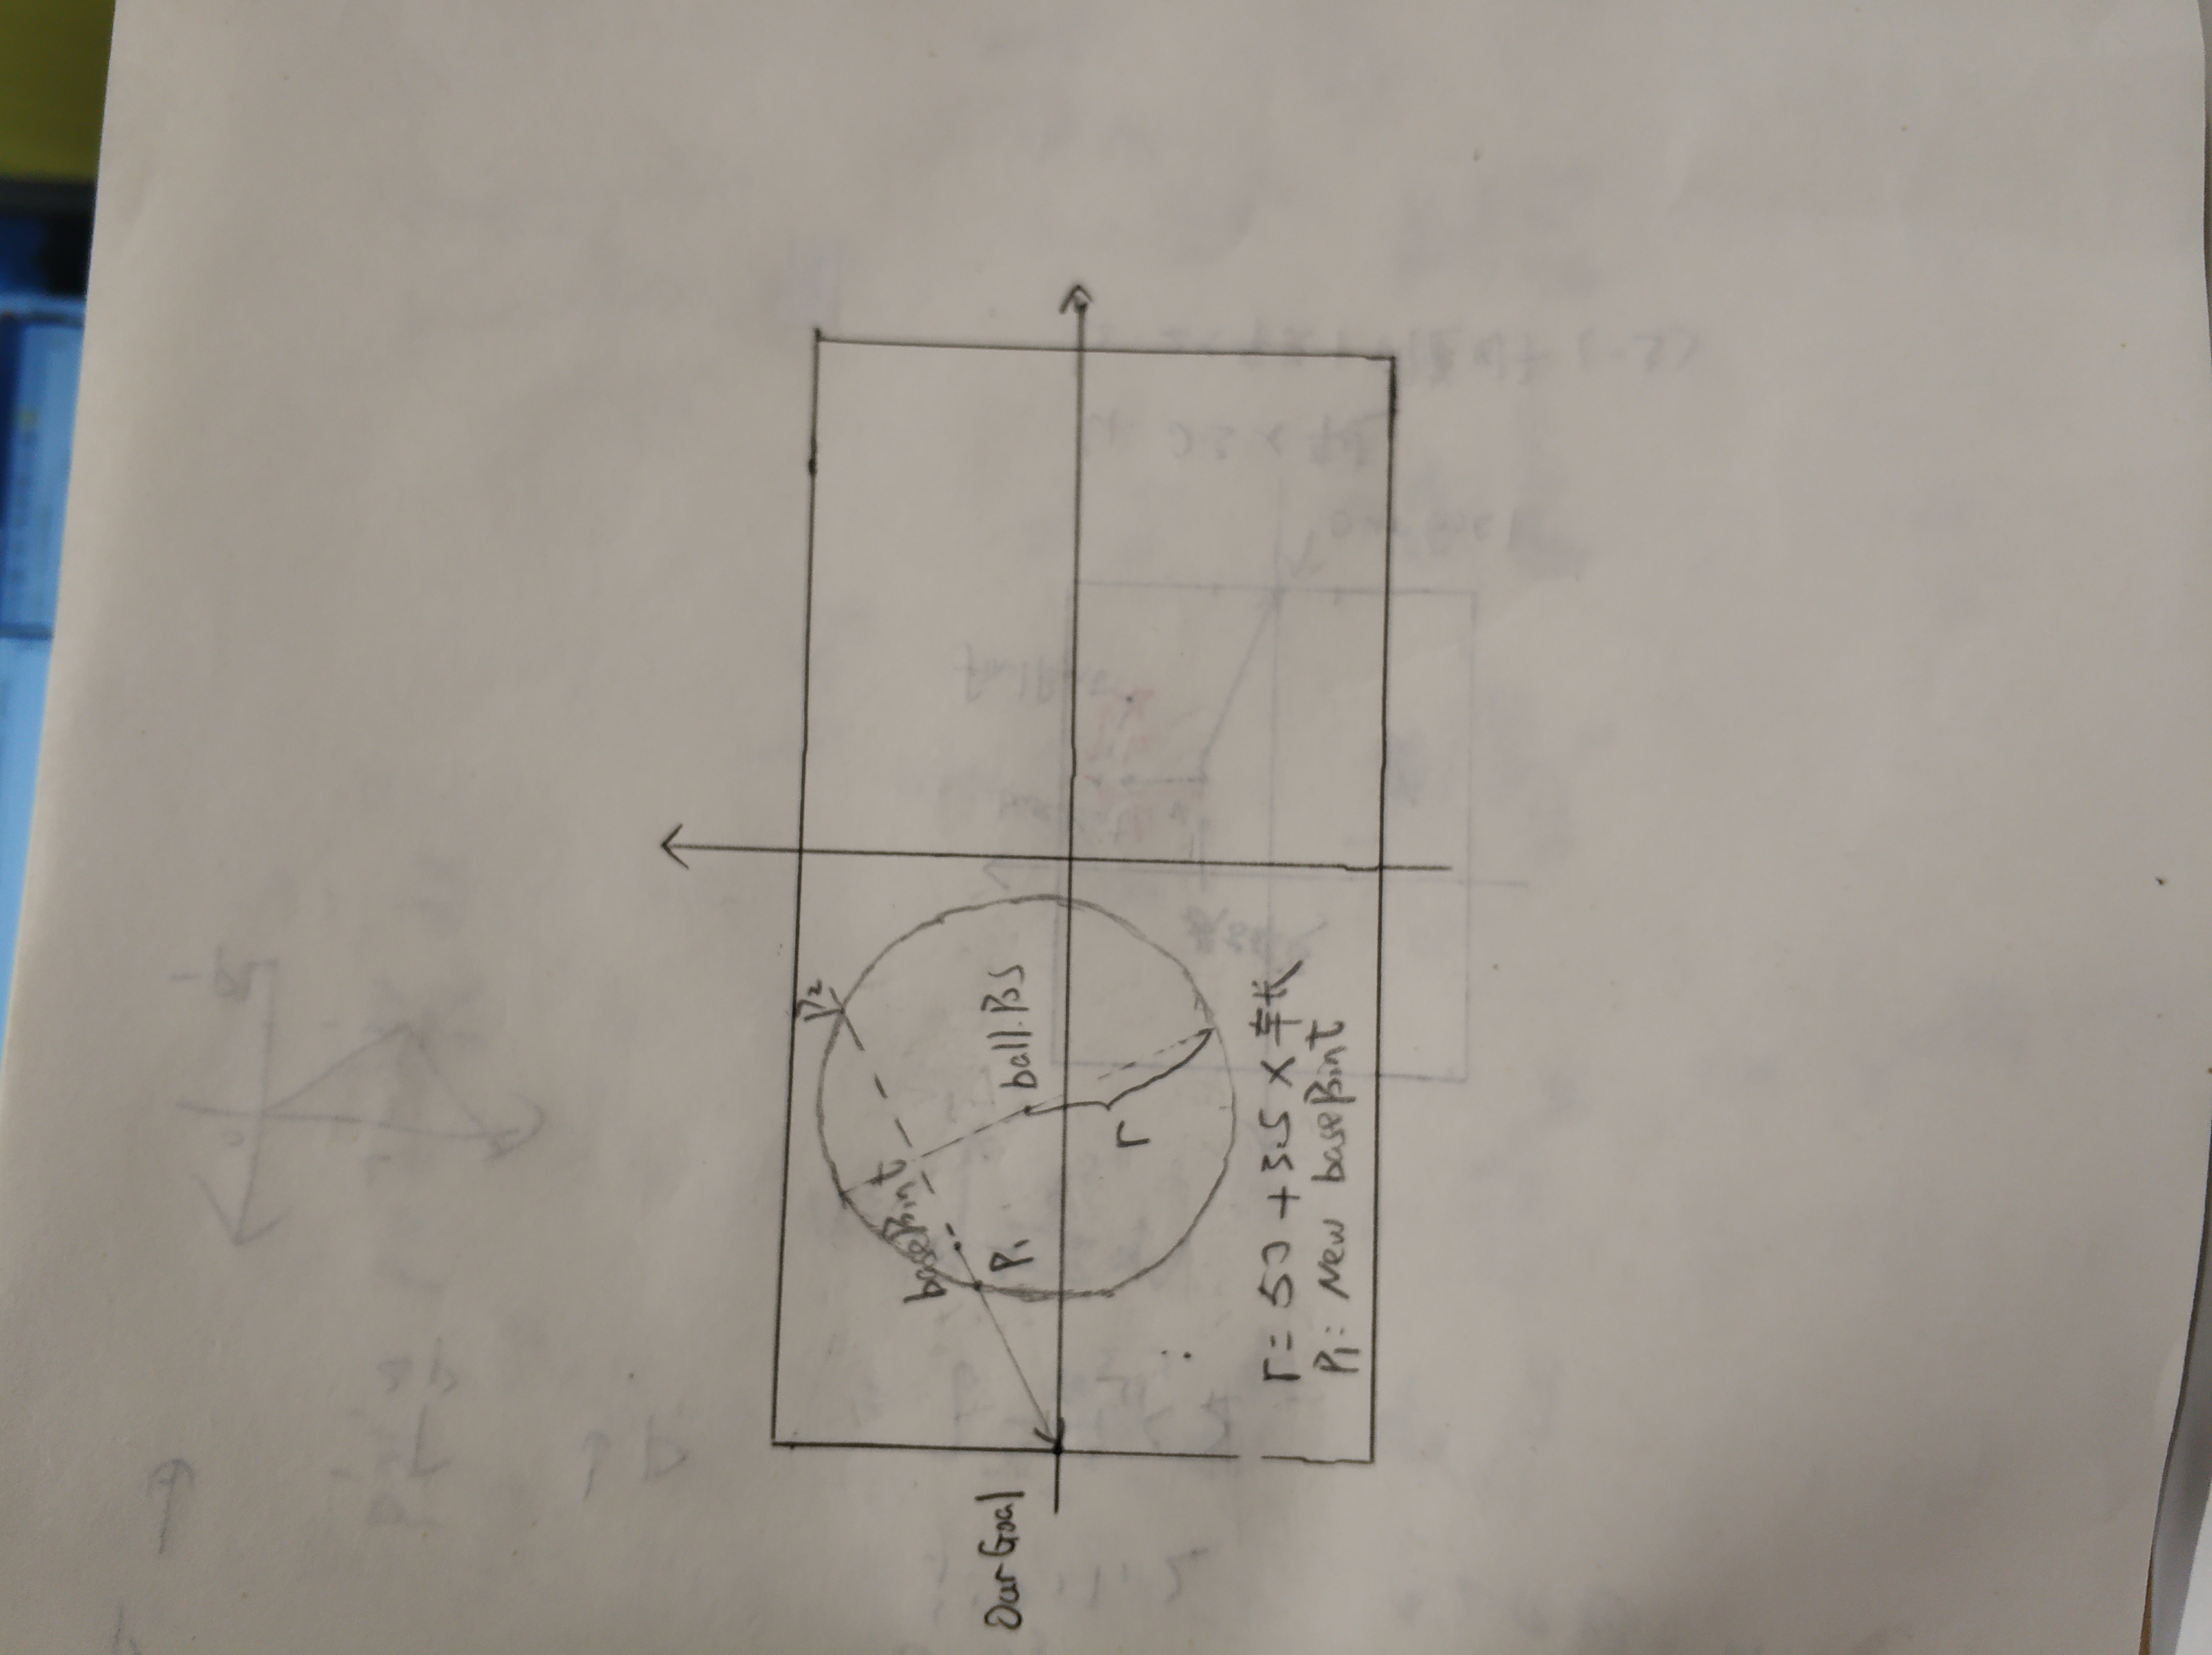 P2
basePoint
Our Goal
P1
ball.Pos
r
r = 50 + 3.5 × 车长
P1: New basePoint